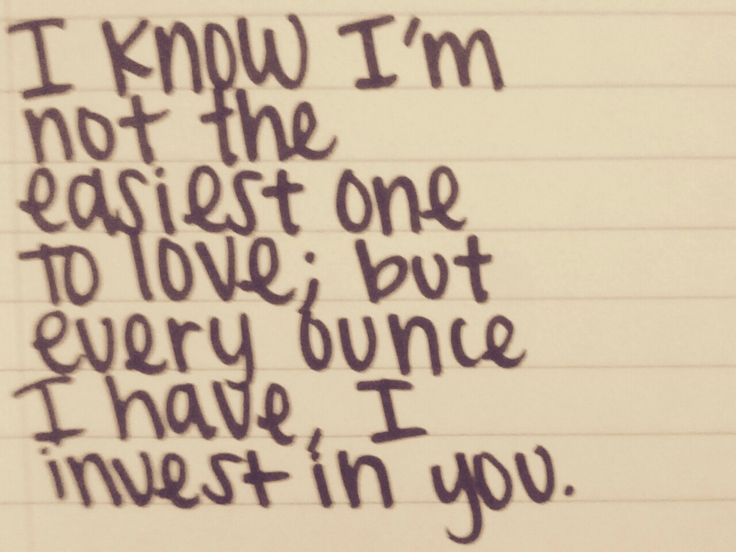 I know I'm
not the
easiest one
to love; but
every ounce
I have, I
invest in you.